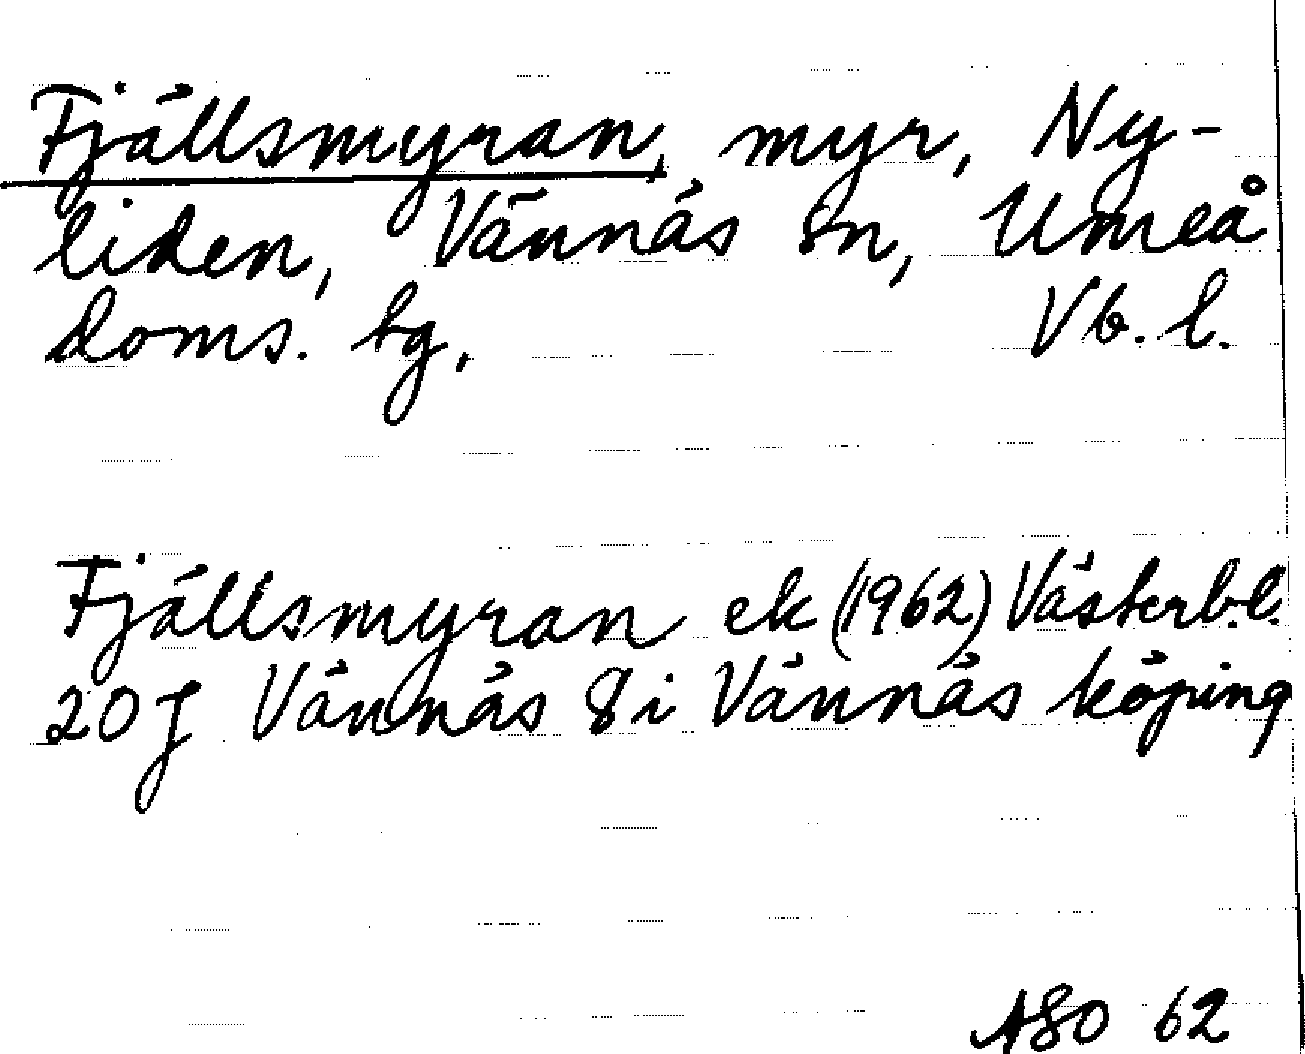 Fjällsmyran, myr, Ny-
liden, Vännäs sn, Umeå
doms. tg. Vb. l.
Fjällsmyran ek (1962) Västerb.l.
20 J Vännäs 8 i Vännäs köping
ASO 62